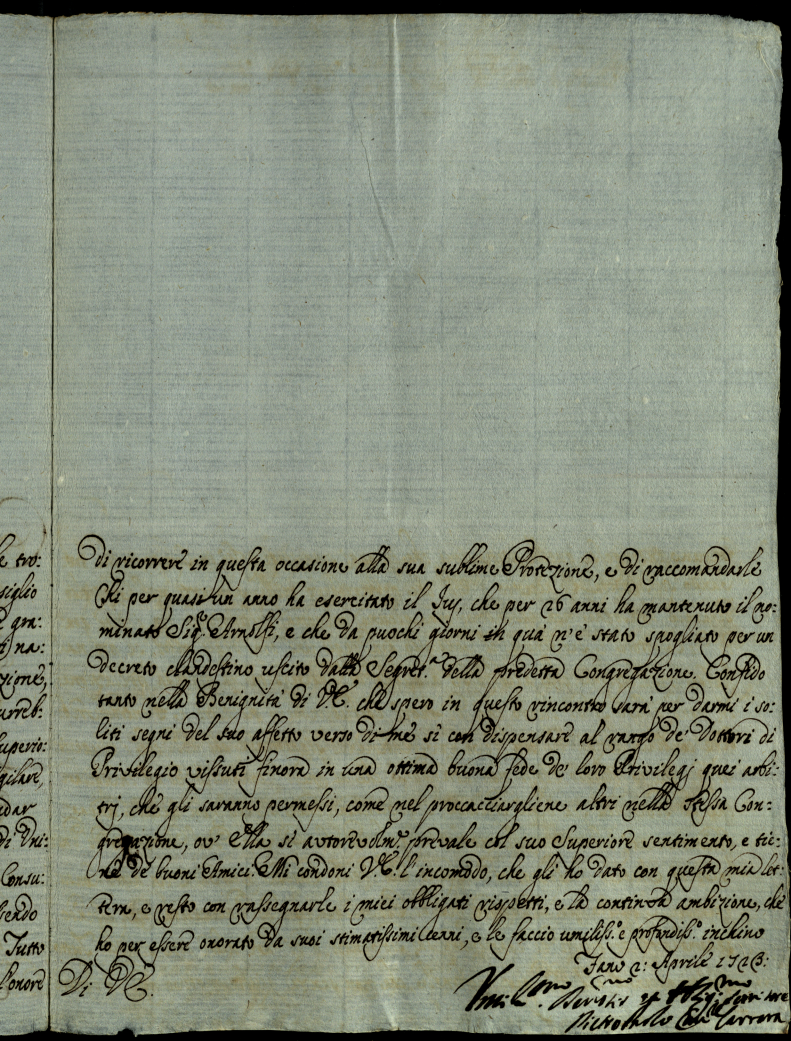 le tro:
siglio
gra:
i na:
zione,
urreb:
uperio:
gilare,
dar
di Uni:
Consu:
sendo
Tutto
l'onore
Di ricorrere in questa occasione alla sua sublime Protezione, e di raccomandarle
chi per quasi un anno ha esercitato il Jus, che per 26 anni ha mantenuto il no:
minato Sig.r Arnolfi, e che da puochi giorni in quà n'è stato spogliato per un
decreto clandestino uscito dalla Segret.a della predetta Congregazione. Confido
tanto nella Benignità di V.E. che spero in questo rincontro sarà per darmi i so:
liti segni del suo affetto verso di me sì con dispensare al rango de' Dottori di
Privilegio vissuti finora in una ottima buona fede de' loro Privilegj quei arbi:
trj, che gli saranno permessi, come nel proccacciargliene altri nella stessa Con:
gregazione, ov' Ella si autorevolm.e prevale col suo Superiore sentimento, e tie:
ne de' buoni Amici. Mi condoni V.E. l'incomodo, che gli ho dato con questa mia let:
tera, e resto con rassegnarle i miei obbligati rispetti, e la continoa ambizione, che
ho per essere onorato da suoi stimatissimi cenni, e le faccio umiliss.o e profondiss.o inchino
Di V.E.
Fano 2: Aprile 1723:
Umil.mo Servitore
Carrara